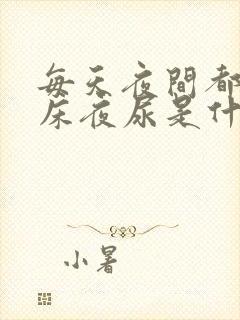 每天夜間都
床夜尿是什
小暑